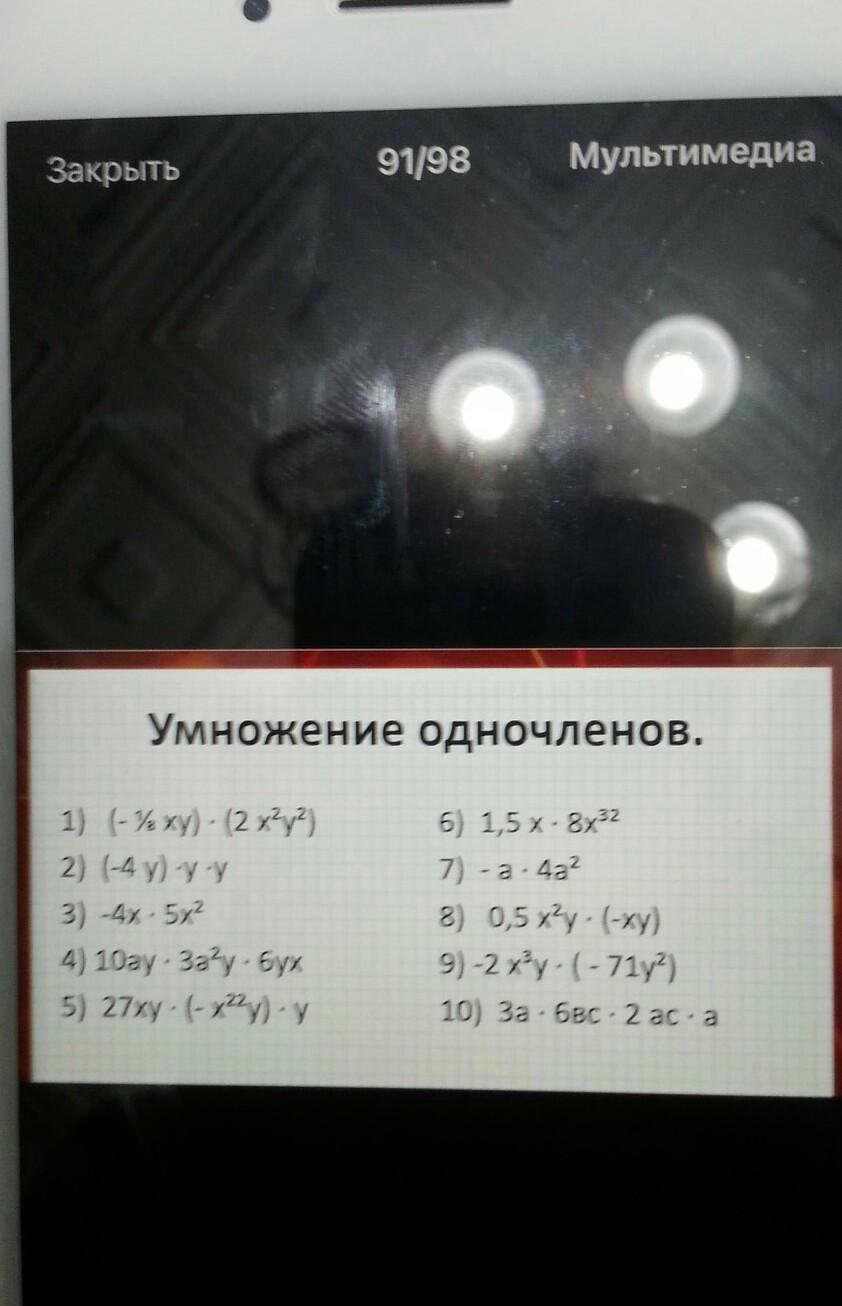 Закрыть 91/98 Мультимедиа
Умножение одночленов.
1) (- ½ xy) · (2 x²y²)
2) (-4 y) · y · y
3) -4x · 5x²
4) 10ay · 3a²y · 6yx
5) 27xy · (- x²²y) · y
6) 1,5 x · 8x³²
7) - a · 4a²
8) 0,5 x²y · (-xy)
9) -2 x³y · ( - 71y²)
10) 3a · 6вс · 2 ac · a